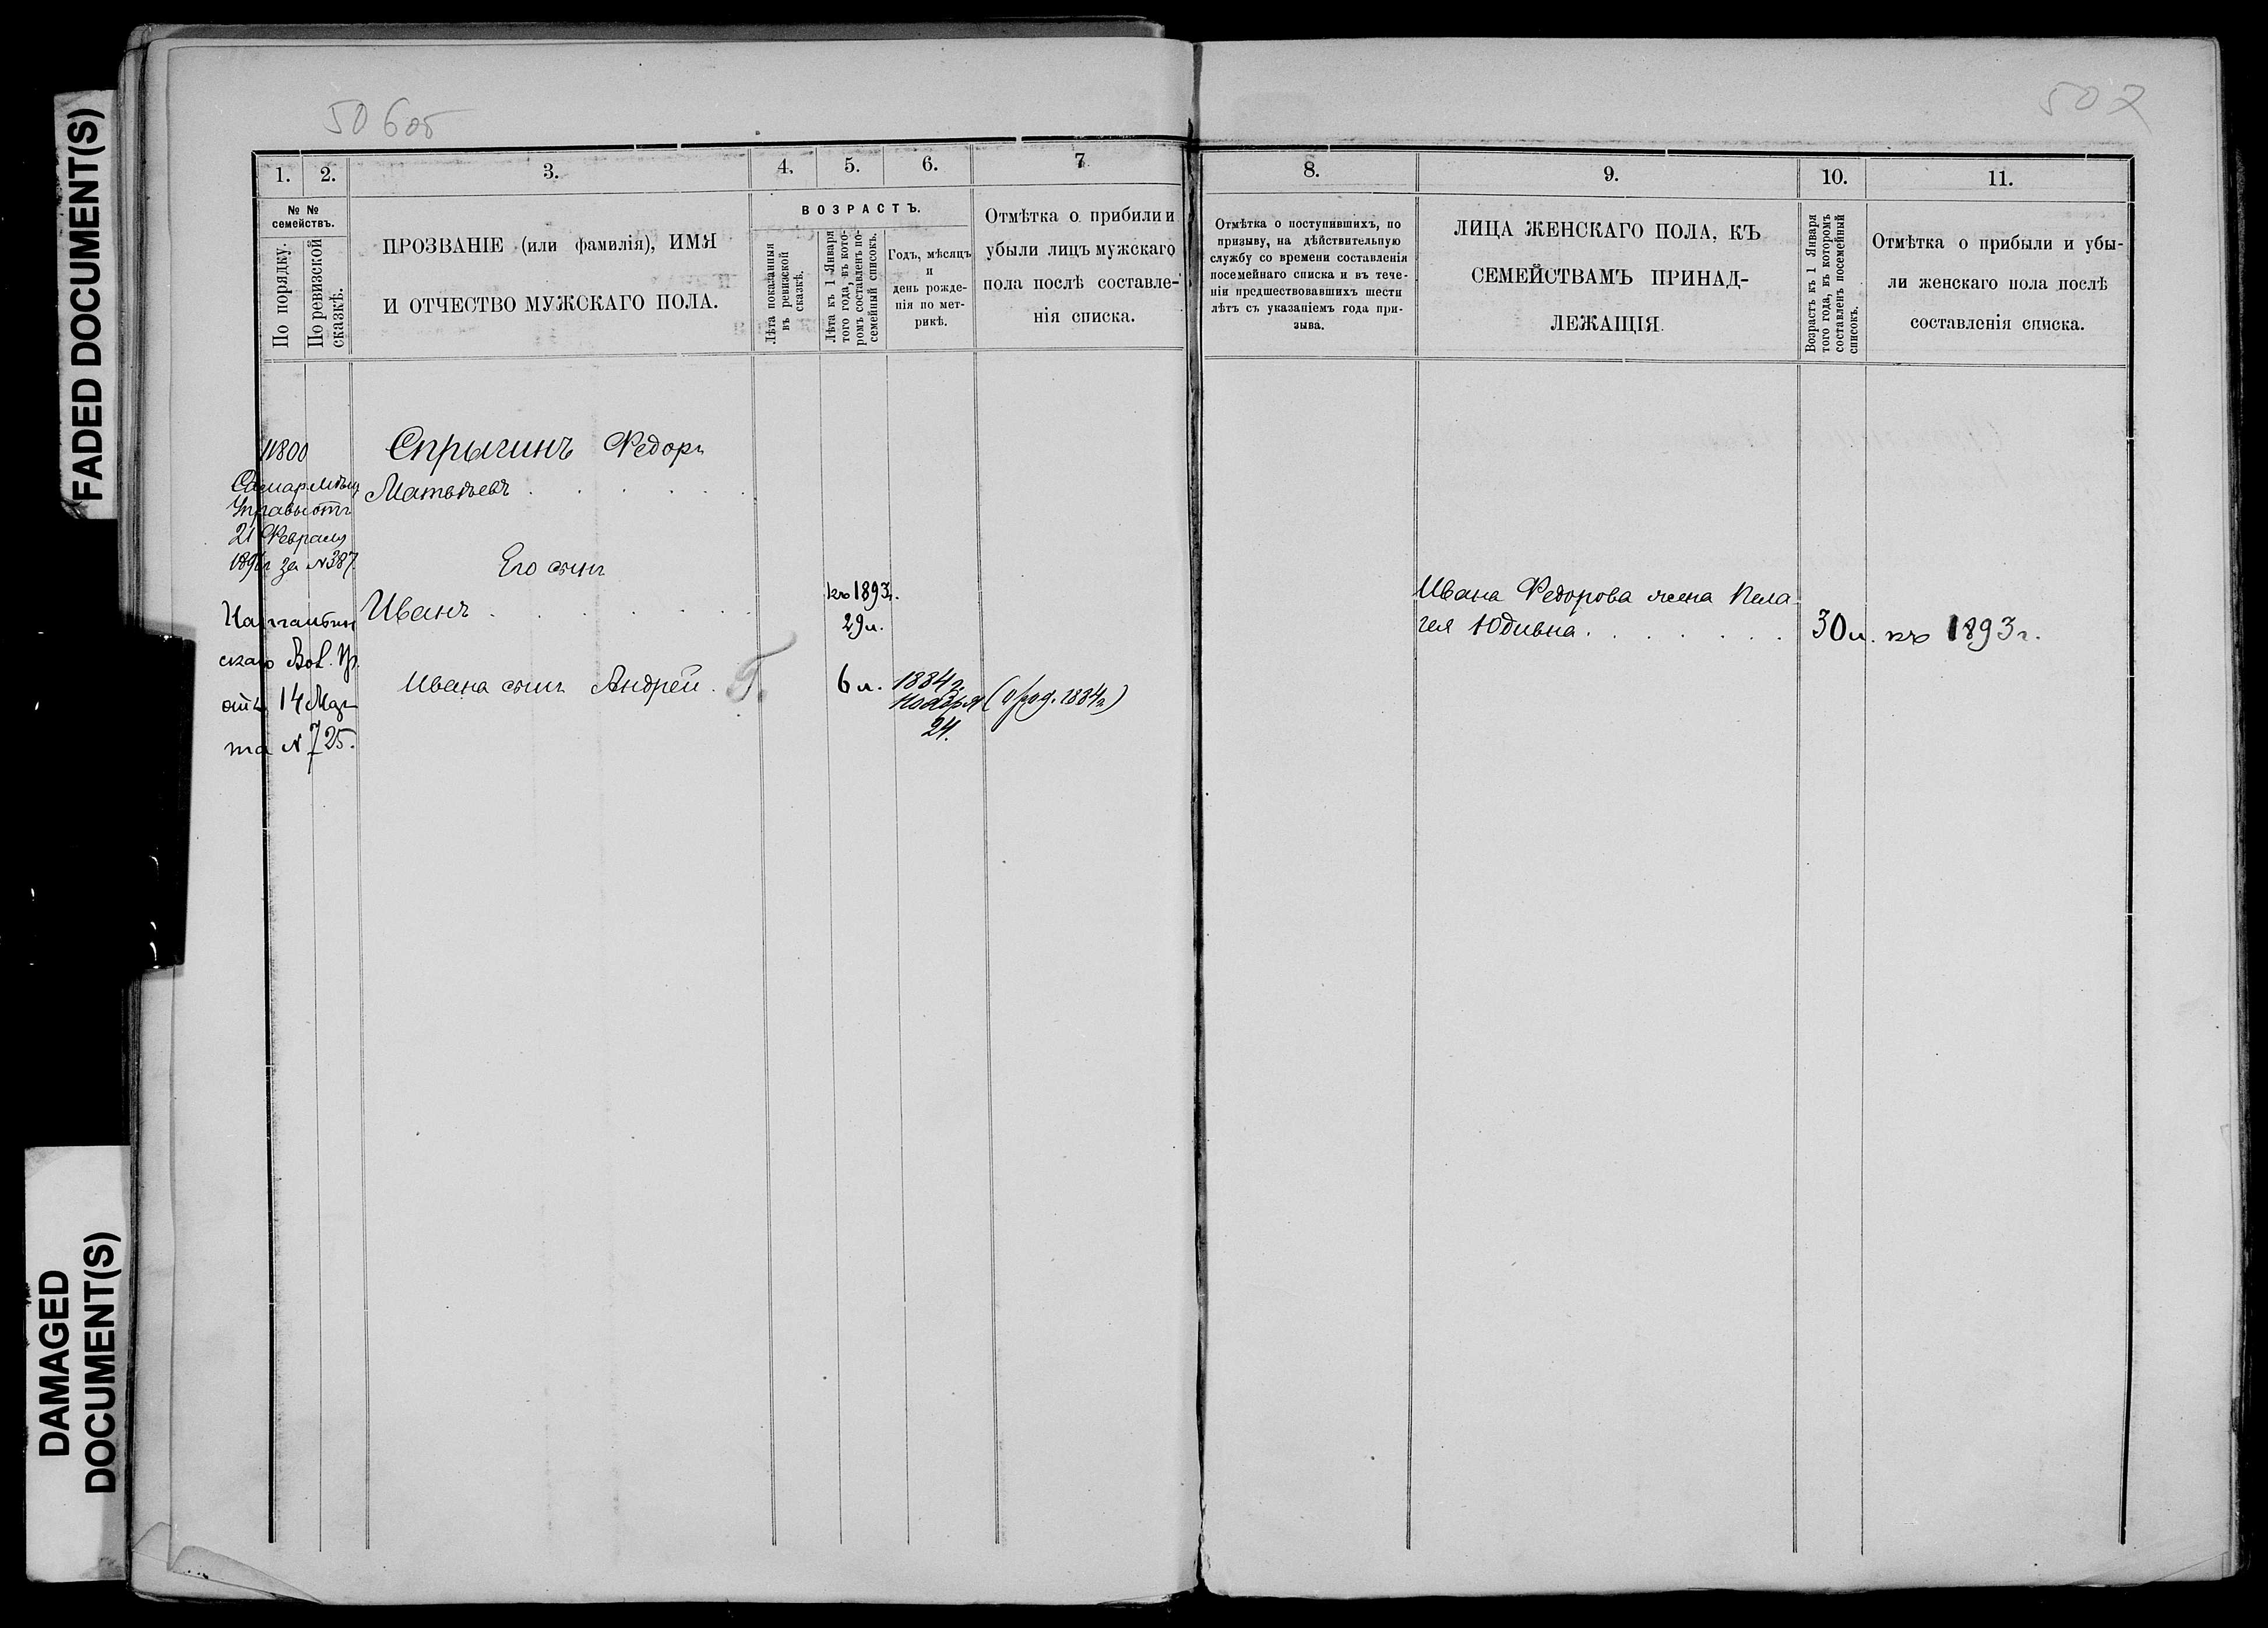 FADED DOCUMENT(S)
DAMAGED
DOCUMENT(S)
506об
507
1.
2.
3.
4.
5.
6.
7
№ №
семействъ.
По порядку.
По ревизской
сказкѣ.
ПРОЗВАНІЕ (или фамилія), ИМЯ
И ОТЧЕСТВО МУЖСКАГО ПОЛА.
ВОЗРАСТЪ.
Лѣта показанныя
въ ревизской
сказкѣ.
Лѣта къ 1 Января
того года, въ кото-
ромъ составленъ по-
семейный списокъ.
Годъ, мѣсяцъ
и
день рожде-
нія по мет-
рикѣ.
Отмѣтка о прибыли и
убыли лицъ мужскаго
пола послѣ составле-
нія списка.
8.
9.
10.
11.
Отмѣтка о поступившихъ, по
призыву, на дѣйствительную
службу со времени составленія
посемейнаго списка и въ тече-
ніи предшествовавшихъ шести
лѣтъ съ указаніемъ года при-
зыва.
ЛИЦА ЖЕНСКАГО ПОЛА, КЪ
СЕМЕЙСТВАМЪ ПРИНАД-
ЛЕЖАЩІЯ.
Возрастъ къ 1 Января
того года, въ которомъ
составленъ посемейный
списокъ.
Отмѣтка о прибыли и убы-
ли женскаго пола послѣ
составленія списка.
Спрыгинъ Федоръ
Матвѣевъ
Самар. Мѣщ
Управы отъ
21 Февраля
за №387
Его сынъ
Иванъ
къ 1893г.
29л.
скаго Вол. Пр.
отъ 14 Мар
та №725.
Ивана сынъ Андрей
6л.
1884г.
Ноября
24.
Ивана Федорова жена Пела-
гея Юдивна
30л.
къ 1893г.